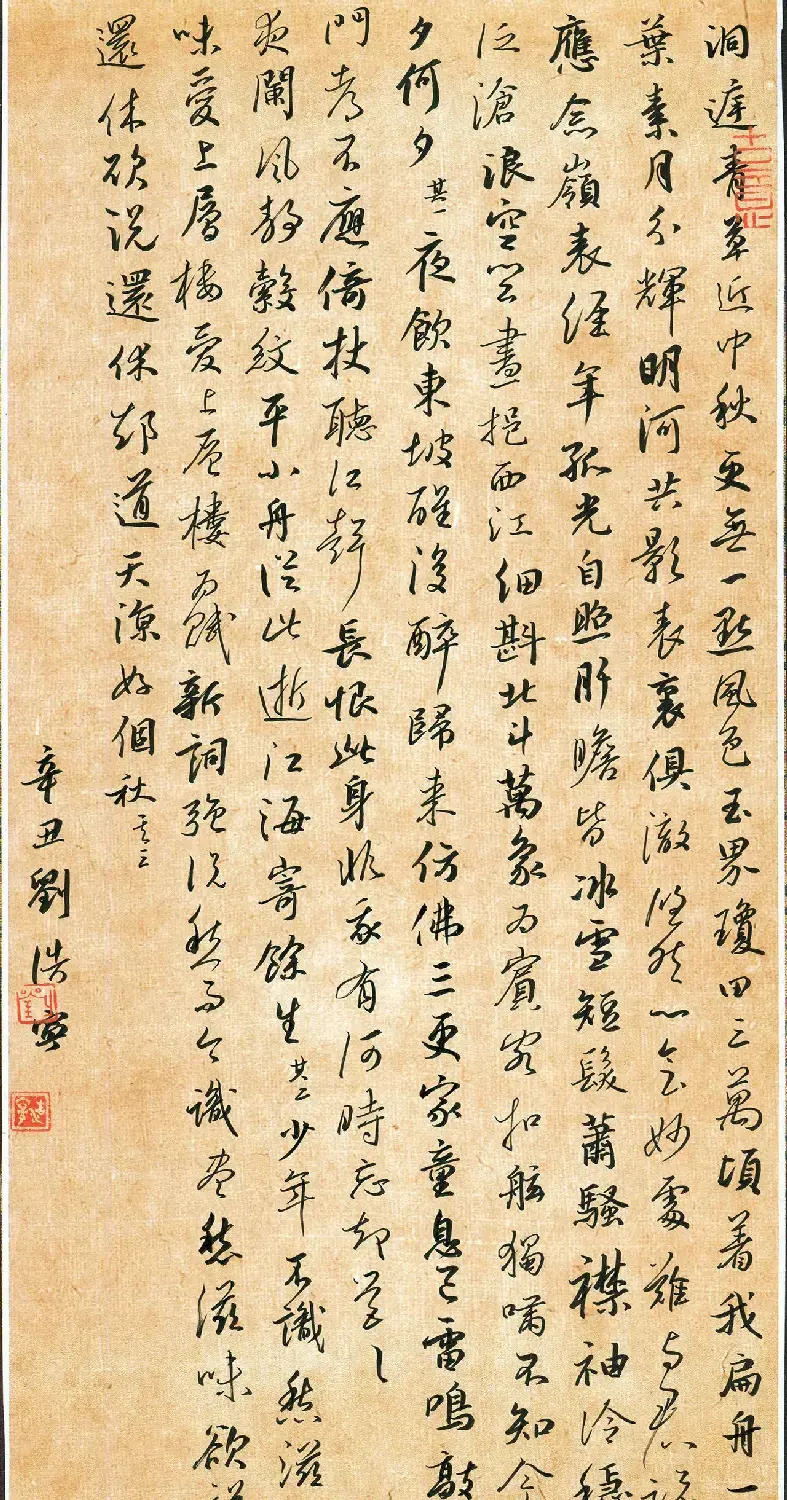 洞庭青草近中秋更無一點風色玉界瓊田三萬頃着我扁舟一
葉素月分輝明河共影表裏俱澈悠然心會妙處難與君說
應念嶺表經年孤光自照肝膽皆冰雪短髮蕭騷襟袖冷穩
泛滄浪空闊盡挹西江細斟北斗萬象為賓客扣舷獨嘯不知今
夕何夕其一夜飲東坡醒復醉歸来仿佛三更家童息已雷鳴敲
門考不應倚杖聽江聲長恨此身非我有何時忘却營〻
夜闌風静縠紋平小舟從此逝江海寄餘生其二少年不識愁滋
味愛上層樓愛上層樓為賦新詞強說愁而今識盡愁滋味欲說
還休欲說還休却道天涼好個秋其三
辛丑劉浩